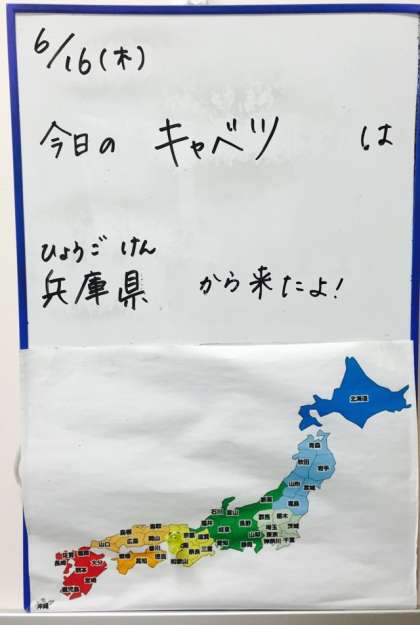 6/16(木)
今日の キャベツ は
ひょうご けん
兵庫県 から来たよ!
北海道
青森
秋田 岩手
山形 宮城
福島
新潟
石川 富山
群馬 栃木
福井 長野
埼玉 茨城
岐阜 山梨 東京
愛知 静岡 神奈川 千葉
島根 鳥取
京都 滋賀
山口 広島 岡山
奈良 三重
香川
和歌山
愛媛 高知 徳島
佐賀 福岡
長崎 大分
熊本
宮崎
鹿児島
沖縄